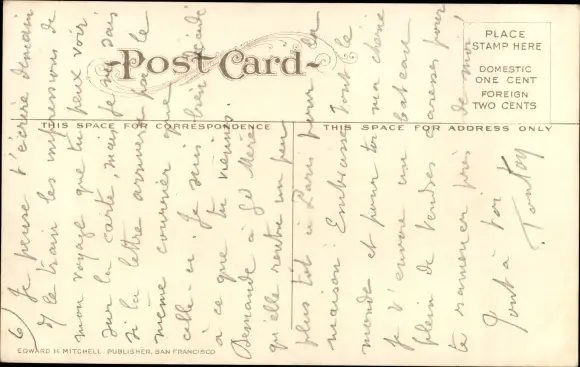 Post Card
PLACE
STAMP HERE
DOMESTIC
ONE CENT
FOREIGN
TWO CENTS
THIS SPACE FOR CORRESPONDENCE
THIS SPACE FOR ADDRESS ONLY
6) Je pense t'écrire demain
le train les impressions de
mon voyage que tu peux voir
sur la carte, mais je ne sais
si la lettre arrivera par le
même courrier que
celle-ci. Je suis bien décidé
à ce que tu viennes.
Demande à Gd Mere
qu'elle rentre un peu
plus tôt à Paris pour
maison. Embrasse tout le
monde et pour toi ma chérie
je t'envoie un bateau
plein de tendres caresses pour
te ramener près de moi.
Tout à toi
EDWARD H. MITCHELL, PUBLISHER, SAN FRANCISCO